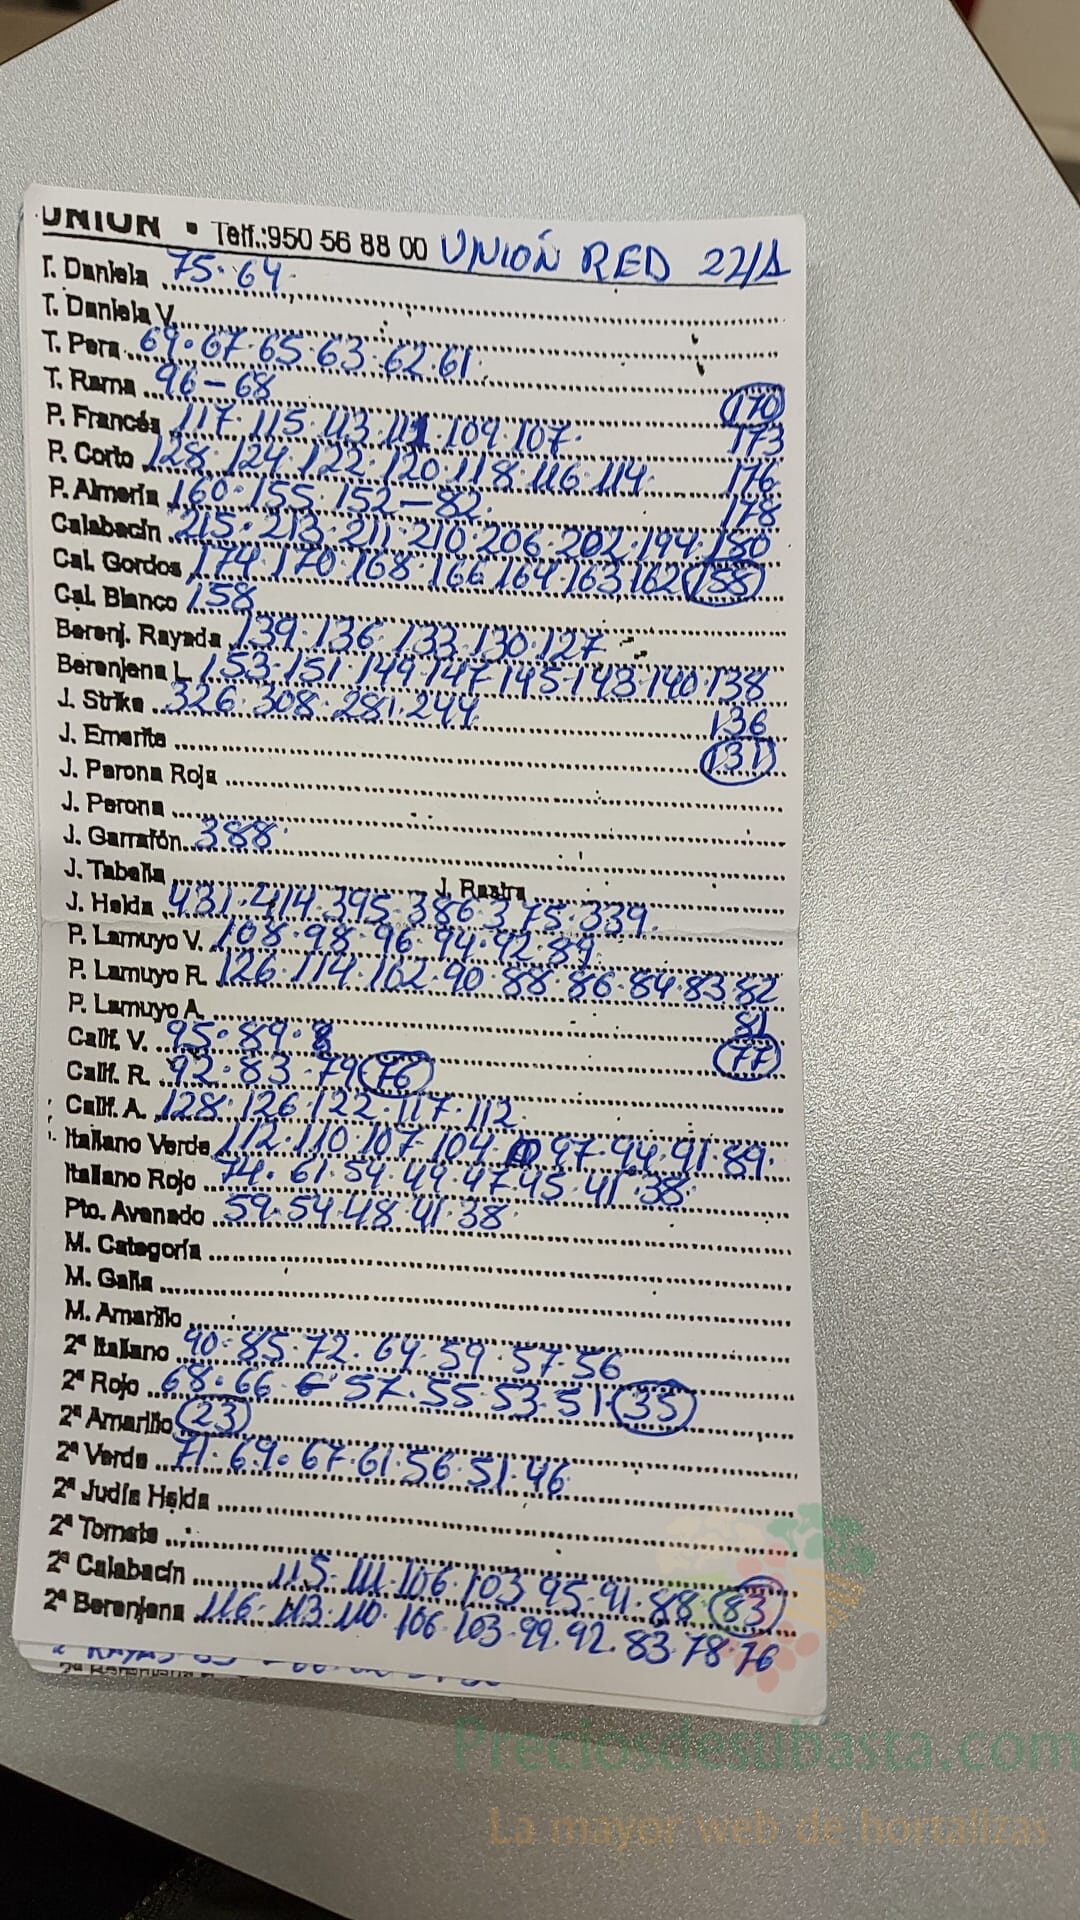 UNION • Telf.:950 56 88 00 UNIÓN RED 22/1
T. Daniela 75·64
T. Daniela V.
T. Pera 69·67·65·63·62·61
T. Rama 96-68 (170)
P. Francés 117·115·113·111·109·107· 173
P. Corto 128·124·122·120·118·116·114· 176
P. Almería 160·155·152-82 178
Calabacín 215·213·211·210·206·202·194·180
Cal. Gordos 174·170·168·166·164·163·162 (158)
Cal. Blanco 158
Berenj. Rayada 139·136·133·130·127
Berenjena L. 153·151·149·147·145·143·140·138
J. Strike 326·308·281·244 136
J. Emerite (131)
J. Perona Roja
J. Perona
J. Garrafón 388
J. Tabella J. Rastra
J. Helda 431·414·395·386·375·339
P. Lamuyo V. 108·98·96·94·92·89
P. Lamuyo R. 126·114·102·90·88·86·84·83·82
P. Lamuyo A. 81
Calif. V. 95·89·8 (77)
Calif. R. 92·83·79 (76)
Calif. A. 128·126·122·117·112
Italiano Verde 112·110·107·104· 97·94·91·89·
Italiano Rojo 74·61·54·49·47·45·41·38
Pto. Avenado 59·54·48·41·38
M. Categoría
M. Galia
M. Amarillo
2ª Italiano 90·85·72·64·59·57·56
2ª Rojo 68·66 57·55·53·51·(35)
2ª Amarillo (23)
2ª Verde 71·69·67·61·56·51·46
2ª Judía Helda
2ª Tomate
2ª Calabacín 115·111·106·103·95·91·88 (83)
2ª Berenjena 116·113·110·106·103·99·92·83·78·76
Preciosdesubasta.com
La mayor web de hortalizas